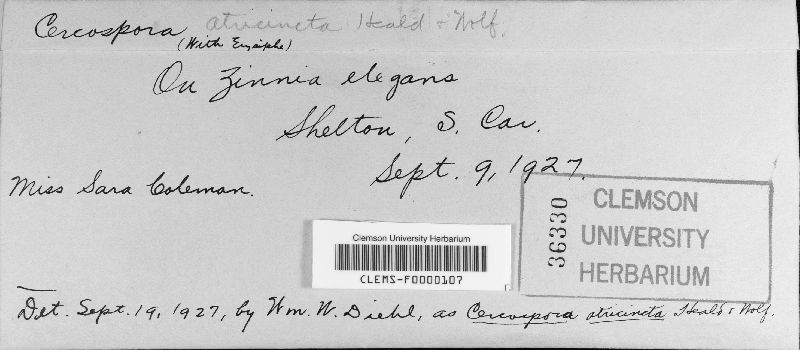 Cercospora atricincta Heald & Wolf.
(With Erysiphe)
On Zinnia elegans
Shelton, S. Car.
Sept. 9, 1927.
Miss Sara Coleman.
36330
CLEMSON
UNIVERSITY
HERBARIUM
Clemson University Herbarium
CLEMS-F0000107
Det. Sept. 19, 1927, by Wm. W. Diehl, as Cercospora atricincta Heald & Wolf.